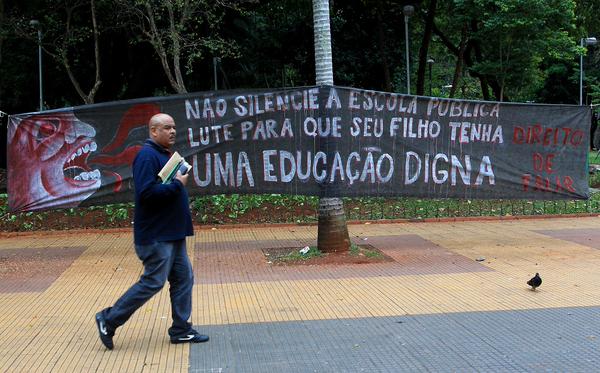 NÃO SILENCIE A ESCOLA PÚBLICA
LUTE PARA QUE SEU FILHO TENHA
UMA EDUCAÇÃO DIGNA
DIREITO
DE
FALAR